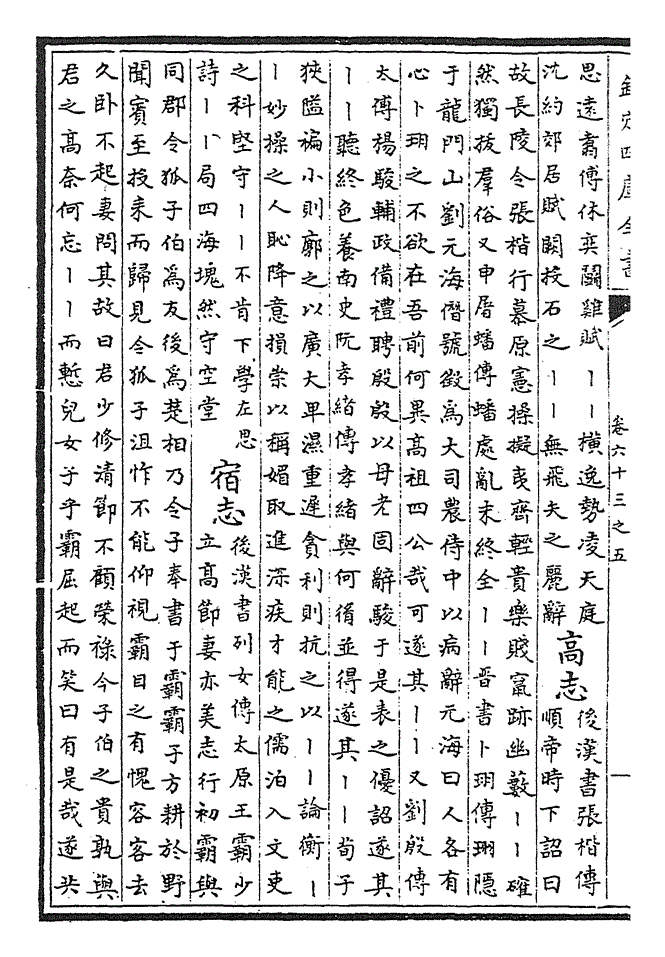 欽定四庫全書 卷六十三之五 一
思遠翥傅休奕鬭雞賦丨丨橫逸勢凌天庭
沈約郊居賦闕投石之丨丨無飛夫之麗辭
高志
後漢書張楷傳
順帝時下詔曰
故長陵令張楷行慕原憲操擬夷齊輕貴樂賤竄跡幽藪丨丨確
然獨拔羣俗又申屠蟠傳蟠處亂末終全丨丨晉書卜珝傳珝隱
于龍門山劉元海僭號徵爲大司農侍中以病辭元海曰人各有
心卜珝之不欲在吾前何異高祖四公哉可遂其丨丨又劉殷傳
太傅楊駿輔政備禮聘殷殷以母老固辭駿于是表之優詔遂其
丨丨聽終色養南史阮孝緒傳孝緒與何胤並得遂其丨丨荀子
狹隘褊小則廓之以廣大卑濕重遲貪利則抗之以丨丨論衡丨
丨妙操之人恥降意損崇以稱媚取進深疾才能之儒洎入文吏
之科堅守丨丨不肯下學左思
詩丨丨局四海塊然守空堂
宿志
後漢書列女傳太原王霸少
立高節妻亦美志行初霸與
同郡令狐子伯爲友後爲楚相乃令子奉書于霸霸子方耕於野
聞賓至投耒而歸見令狐子沮怍不能仰視霸目之有愧容客去
久卧不起妻問其故曰君少修清節不顧榮祿今子伯之貴孰與
君之髙奈何忘丨丨而慙兒女子乎霸屈起而笑曰有是哉遂共